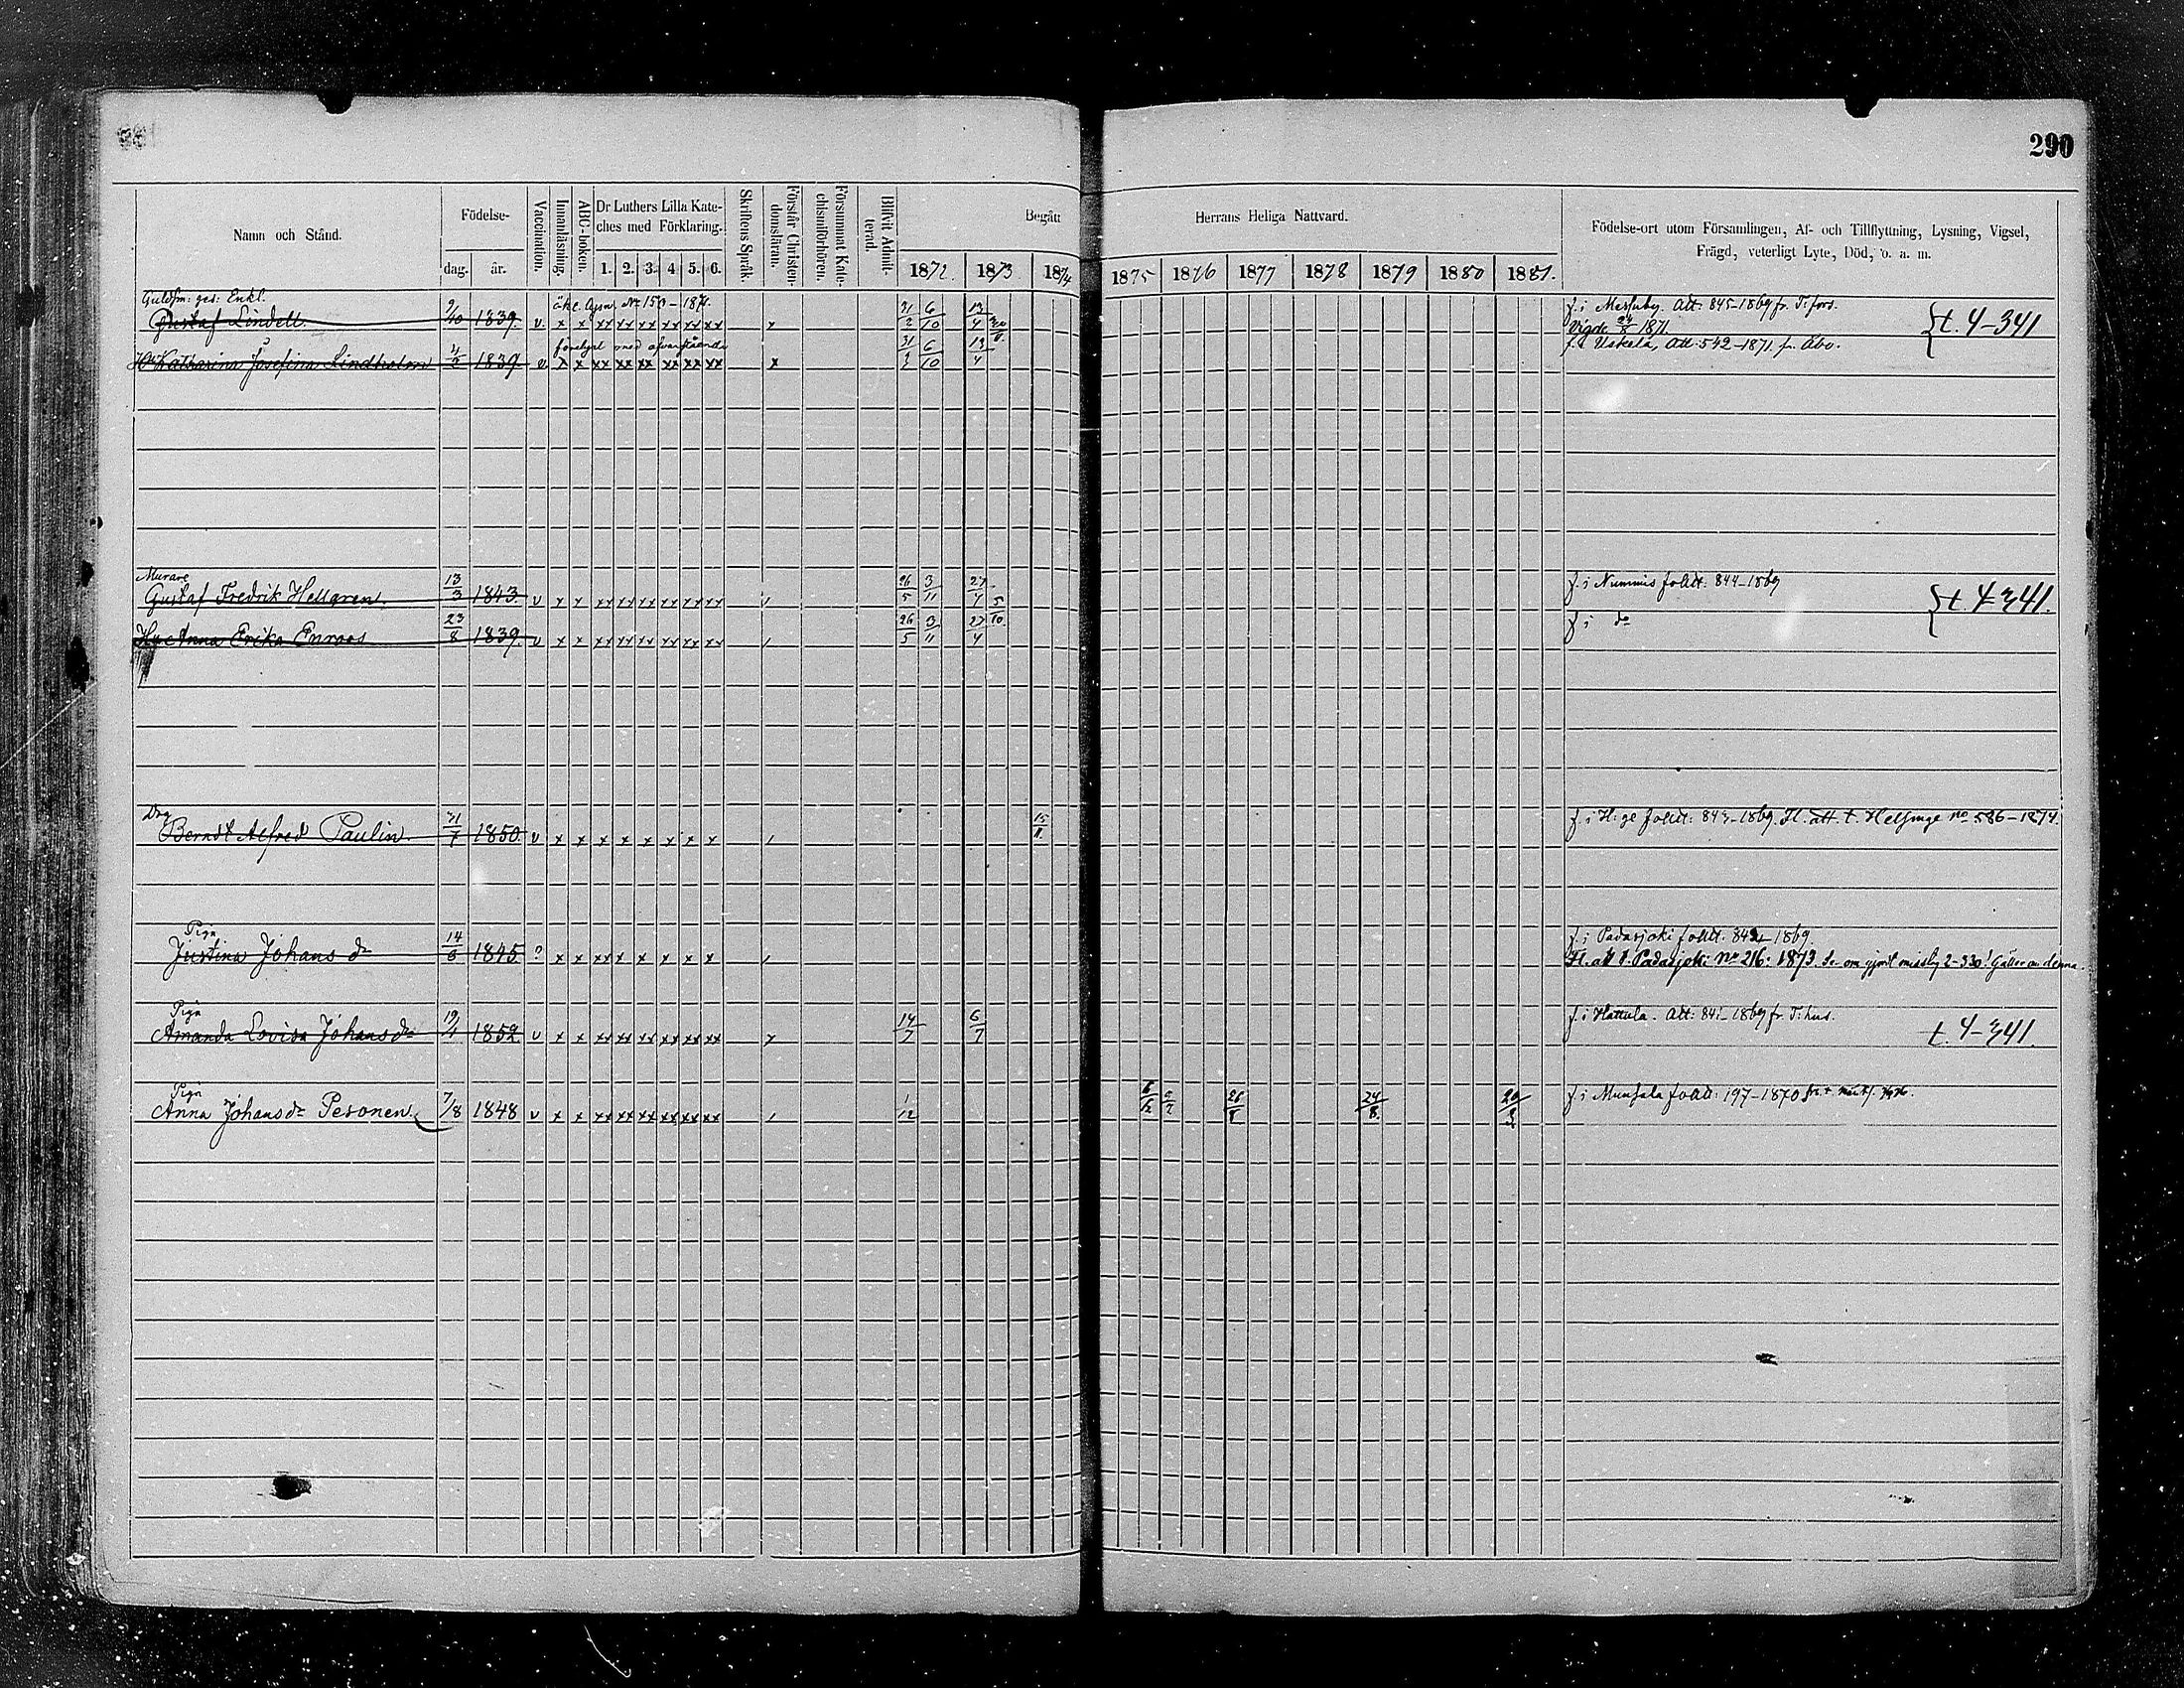 290
Namn och Stånd.
Födelse-
dag. år.
Vaccination.
Innanläsning.
ABC-boken.
Dr Luthers Lilla Kate-
ches med Förklaring.
1. 2. 3. 4 5. 6.
Skriftens Språk.
Förstår Christen-
domsläran.
Försummat Kate-
chismiförhören.
Blifvit Admit-
terad.
Begått Herrans Heliga Nattvard.
1872. 1873 1874 1875 1876 1877 1878 1879 1880 1881.
Födelse-ort utom Församlingen, Af- och Tillflyttning, Lysning, Vigsel,
Frägd, veterligt Lyte, Död, o. a. m.
Guldsm: ges: Enkl.
Gustaf Lindell. 9/10 1839. v. x x xx xx xx xx xx xx 31/2 6/10 13/4 Vigde 1871 t. 4-341
Katharina Josefina Lindholm 4/2 1839. v x x xx xx xx xx xx xx x 6/10 13/4 f. i Uskela, Att: 542-1871 fr. Åbo.
Murare
Gustaf Fredrik Hellgren. 13/3 1843. v x x xx xx xx xx xx xx 26/5 3/11 27/4 f. i Nummis 844-1869 t. 4-341.
Anna Erika Enroos 23/8 1839. v x x xx xx xx xx xx xx 26/5 3/11 27/4 5/10. f. i do
Drg
Berndt Alfred Paulin. 31/7 1850. v x x x x x x x x f. i H:ge t. Helsinge no 586-1874.
Pign
Justina Johans dr 14/6 1845. ? x x x x x x x x f. i Padasjoki 1869
Padasjoki No 216: 1873.
Pign
Amanda Lovisa Johansdr 19/1 1852. v x x xx xx xx xx xx xx 14/7 6/7 f. i Hattula. Att: 1869 fr. T:hus. t. 4-341.
Pign
Anna Johansdr Pesonen. 7/8 1848 v x x xx xx xx xx xx xx 1/12 6/12 24/8. f. i Munsala 197-1870